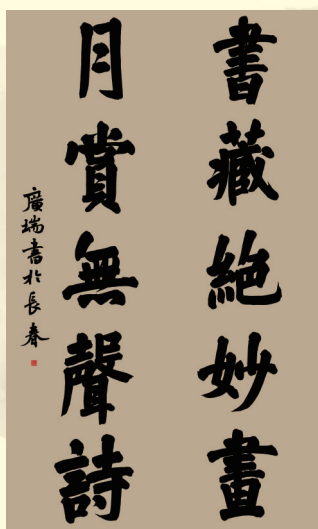 書藏絶妙畫
月賞無聲詩
廣瑞書於長春